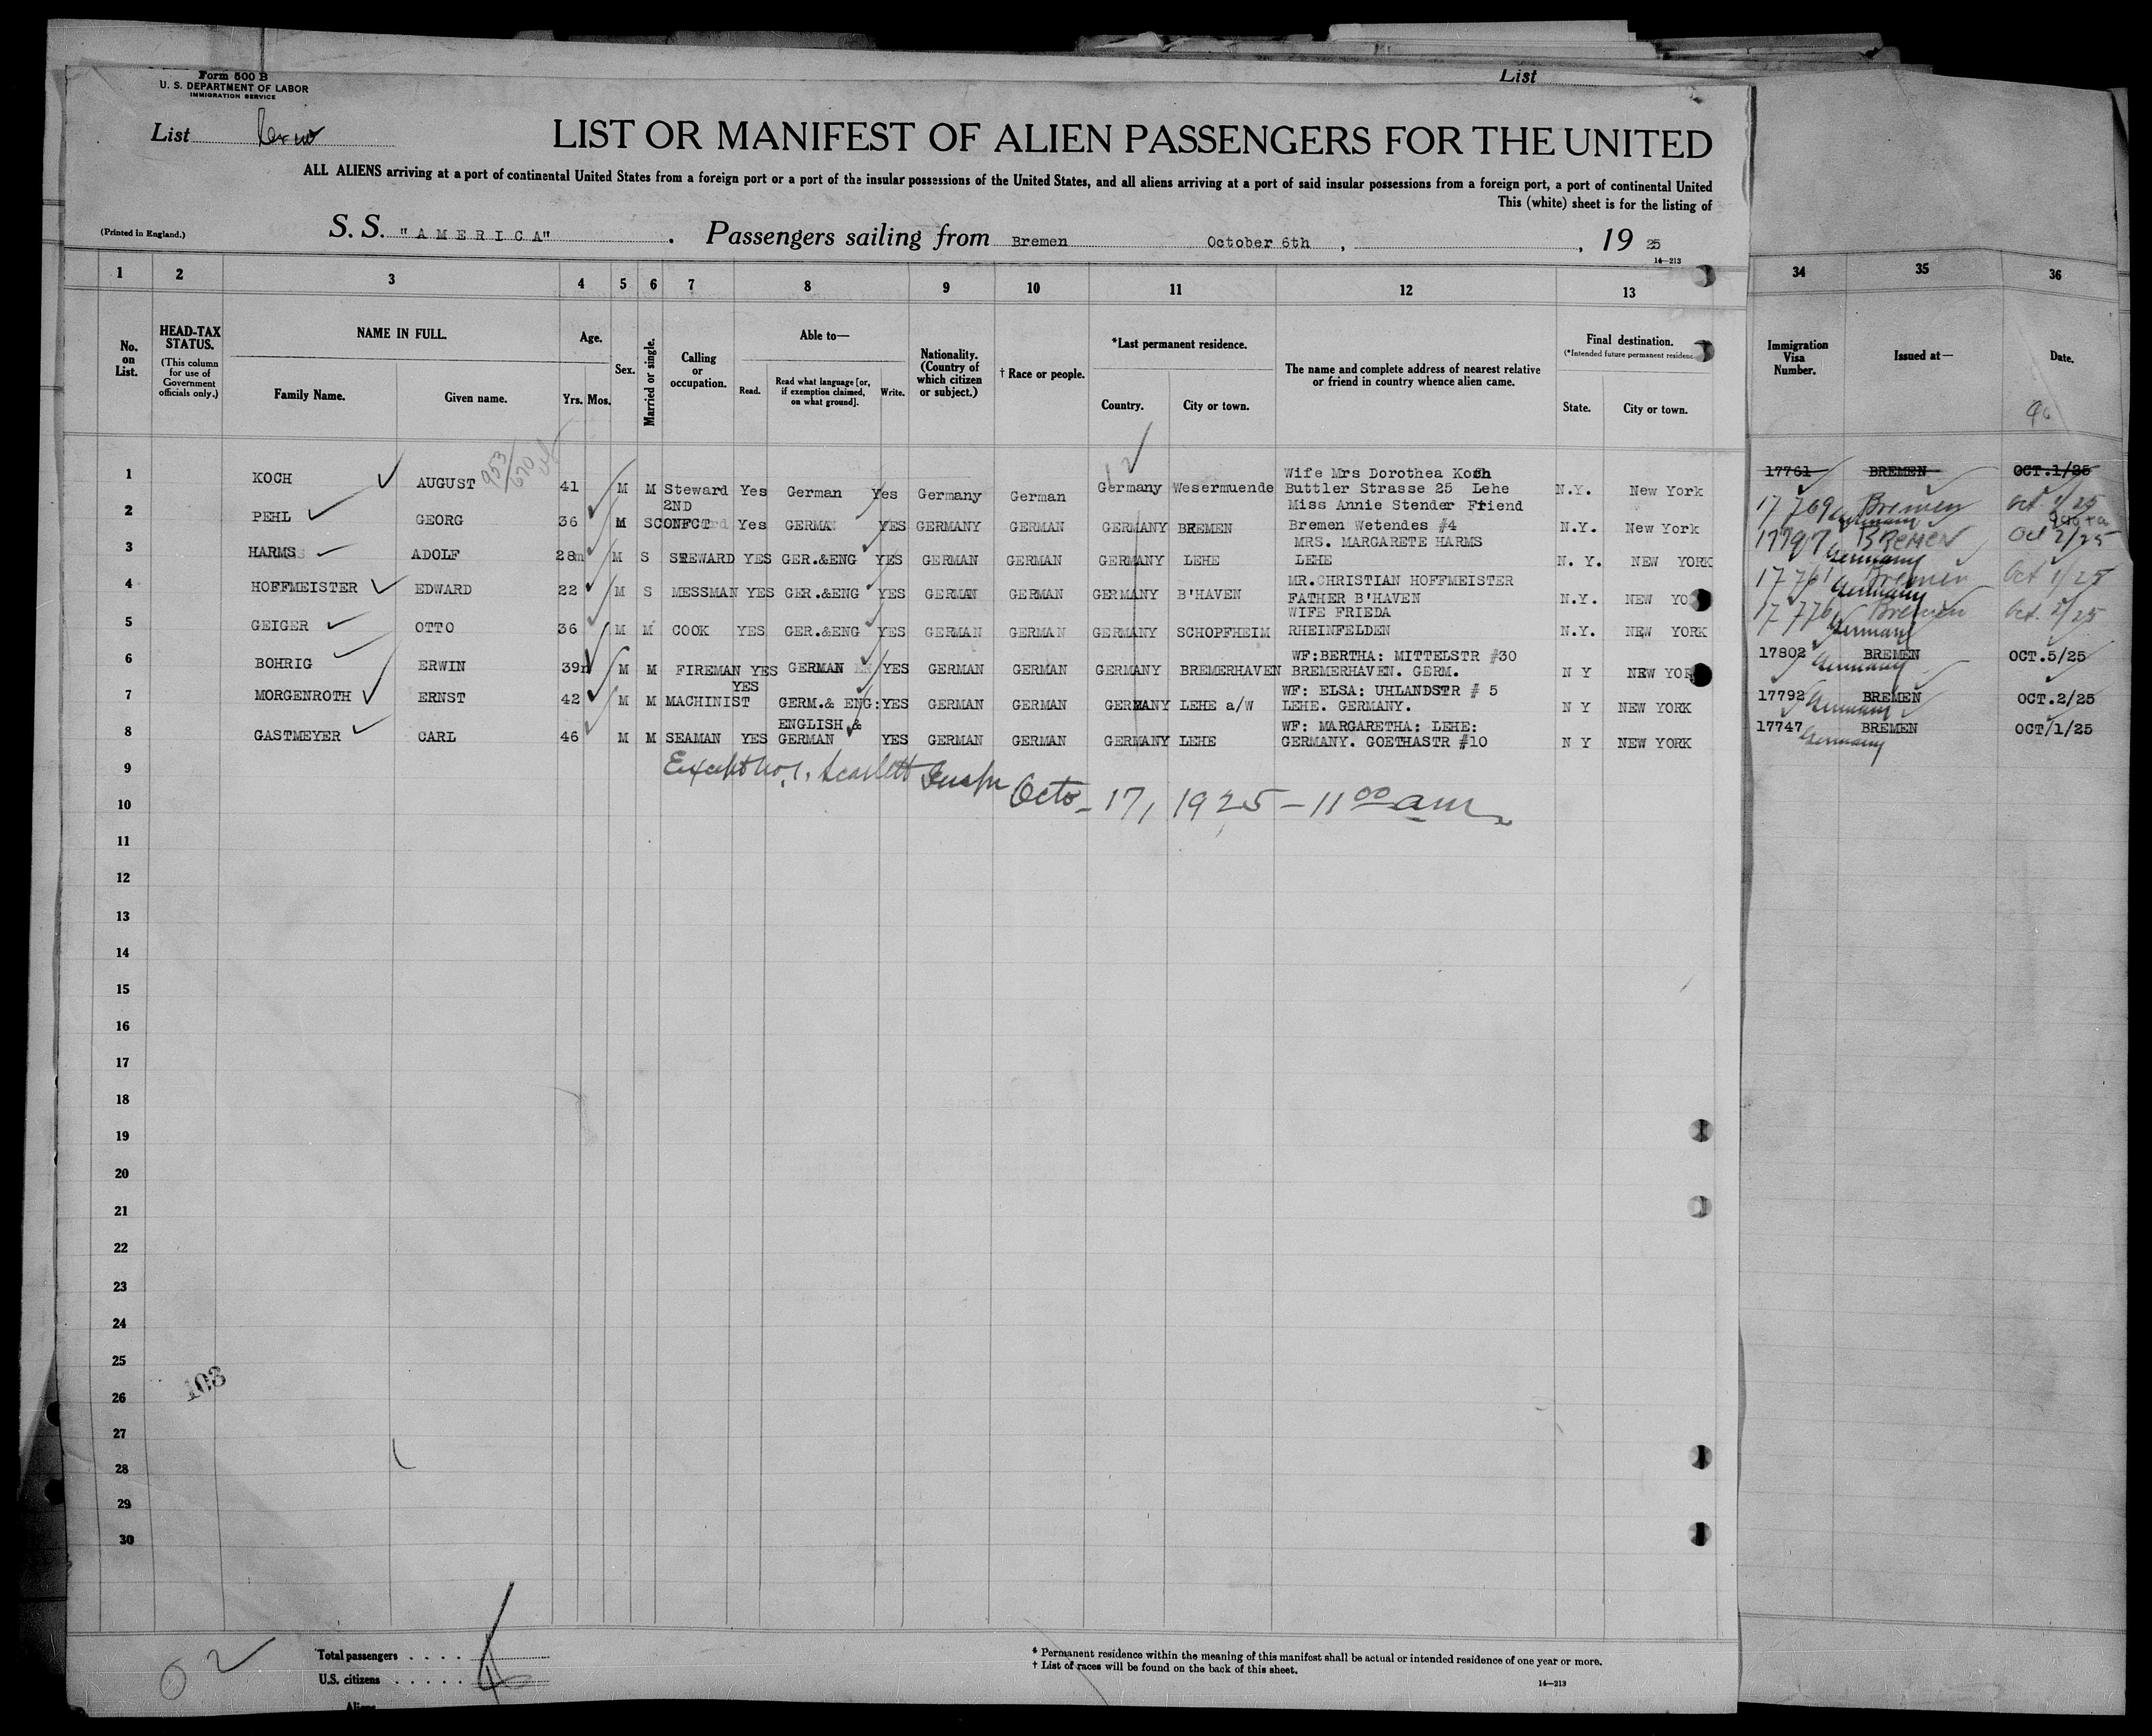 List
Form 500 B
U. S. DEPARTMENT OF LABOR
IMMIGRATION SERVICE
List
LIST OR MANIFEST OF ALIEN PASSENGERS FOR THE UNITED
ALL ALIENS arriving at a port of continental United States from a foreign port or a port of the insular possessions of the United States, and all aliens arriving at a port of said insular possessions from a foreign port, a port of continental United
This (white) sheet is for the listing of
(Printed in England.) S. S. "AMERICA" . Passengers sailing from Bremen October 6th , , 19 25
14—213
1 2 3 4 5 6 7 8 9 10 11 12 13 34 35 36
No. on List.
HEAD-TAX STATUS.
(This column for use of Government officials only.)
NAME IN FULL.
Family Name. Given name.
Age.
Yrs. Mos.
Sex.
Married or single.
Calling or occupation.
Able to—
Read. Read what language [or, if exemption claimed, on what ground]. Write.
Nationality. (Country of which citizen or subject.)
† Race or people.
*Last permanent residence.
Country. City or town.
The name and complete address of nearest relative or friend in country whence alien came.
Final destination.
(*Intended future permanent residence
State. City or town.
Immigration Visa Number.
Issued at—
Date.
953/670
1 KOCH AUGUST 41 M M Steward Yes German Yes Germany German Germany Wesermuende Wife Mrs Dorothea Koch Buttler Strasse 25 Lehe N.Y. New York 17761 BREMEN OCT.1/25
17769 Bremen Germany Oct 1/25
2 PEHL GEORG 36 M S 2ND CONFCT Yes GERMAN YES GERMANY GERMAN GERMANY BREMEN Miss Annie Stender Friend Bremen Wetendes #4 N.Y. New York
17797 BREMEN Germany Oct 2/25
3 HARMS ADOLF 28 M S STEWARD YES GER.&ENG YES GERMAN GERMAN GERMANY LEHE MRS. MARGARETE HARMS LEHE N. Y. NEW YORK
17761 Bremen Germany Oct 1/25
4 HOFFMEISTER EDWARD 22 M S MESSMAN YES GER.&ENG YES GERMAN GERMAN GERMANY B'HAVEN MR.CHRISTIAN HOFFMEISTER FATHER B'HAVEN N.Y. NEW YO
17776 Bremen Germany Oct. 2/25
5 GEIGER OTTO 36 M M COOK YES GER.&ENG YES GERMAN GERMAN GERMANY SCHOPFHEIM WIFE FRIEDA RHEINFELDEN N.Y. NEW YORK
6 BOHRIG ERWIN 39 M M FIREMAN YES GERMAN YES GERMAN GERMAN GERMANY BREMERHAVEN WF:BERTHA: MITTELSTR #30 BREMERHAVEN. GERM. N Y NEW YOR 17802 BREMEN Germany OCT.5/25
7 MORGENROTH ERNST 42 M M MACHINIST YES GERM.& ENG: YES GERMAN GERMAN GERMANY LEHE a/W WF: ELSA: UHLANDSTR # 5 LEHE. GERMANY. N Y NEW YORK 17792 BREMEN Germany OCT.2/25
8 GASTMEYER CARL 46 M M SEAMAN YES ENGLISH & GERMAN YES GERMAN GERMAN GERMANY LEHE WF: MARGARETHA: LEHE: GERMANY. GOETHASTR #10 N Y NEW YORK 17747 BREMEN Germany OCT/1/25
9
Except No 1, Scarlett Inspr
Octo - 17, 1925 - 11 00 am
10
11
12
13
14
15
16
17
18
19
20
21
22
23
24
25
108
26
27
28
29
30
Total passengers . . . .
U.S. citizens . . . . .
Aliens
* Permanent residence within the meaning of this manifest shall be actual or intended residence of one year or more.
† List of races will be found on the back of this sheet.
14—213